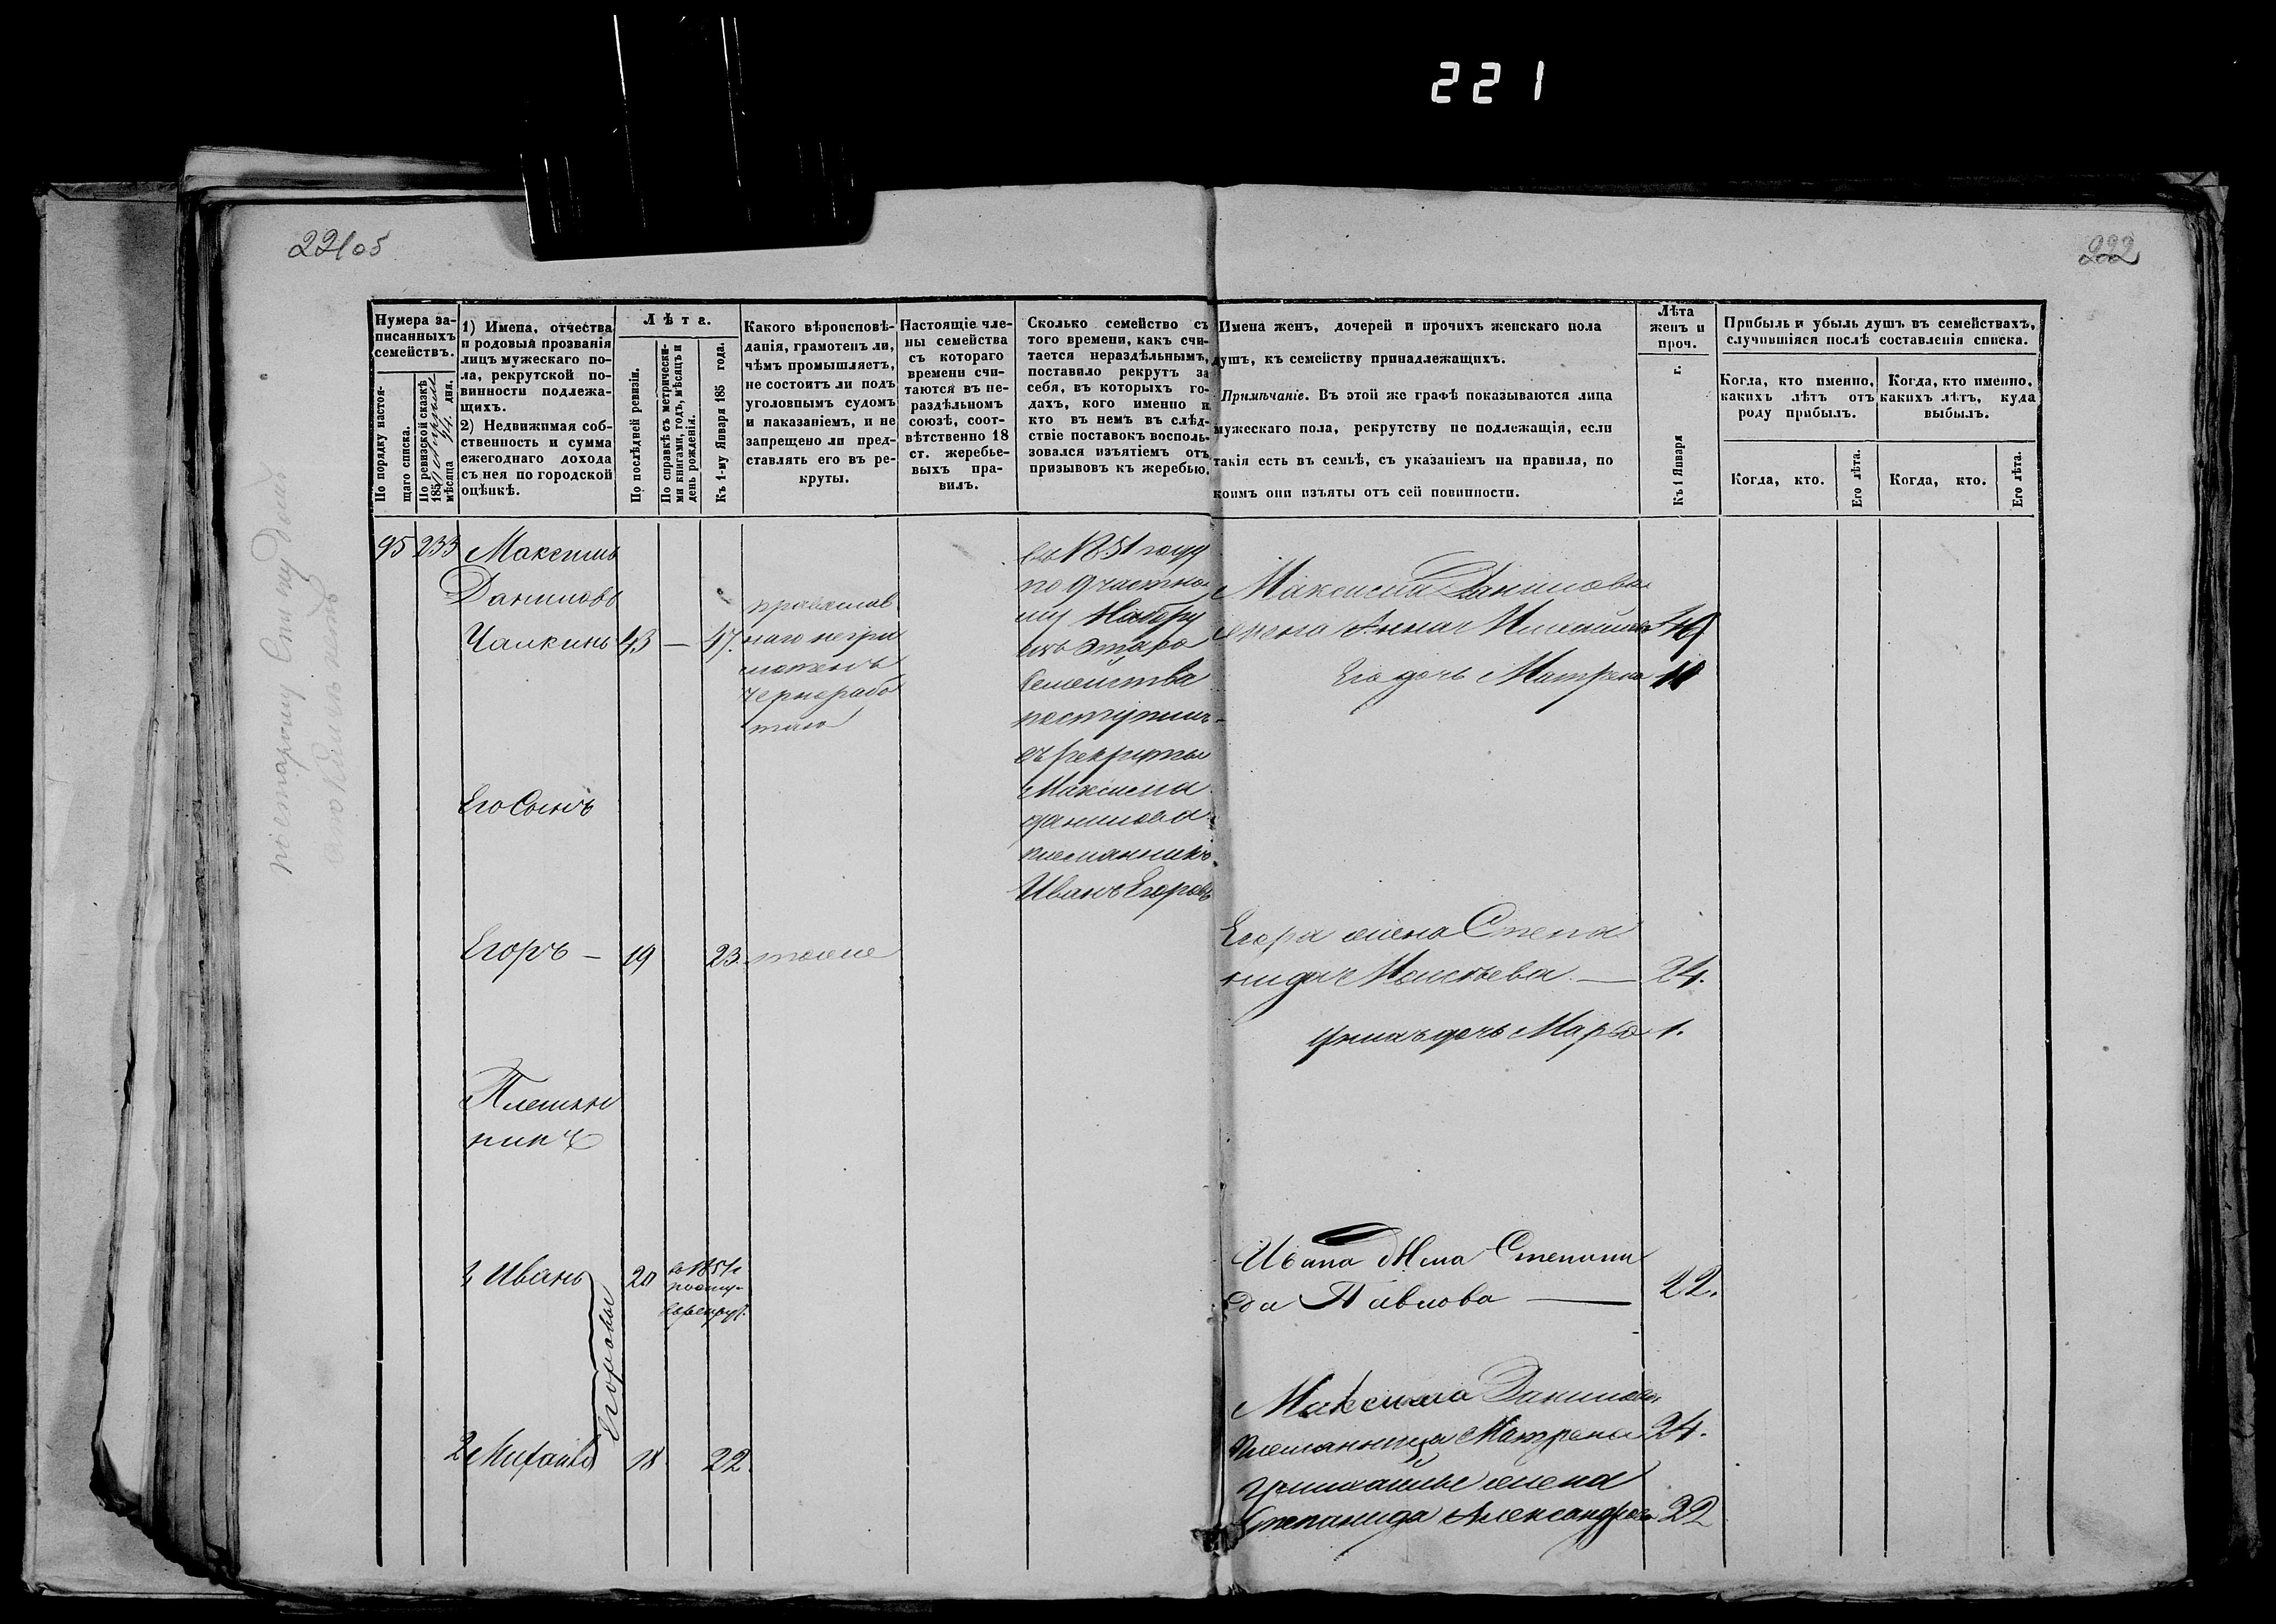 221
221об
222
Нумера записанныхъ семействъ.
По порядку настоящаго списка.
По ревизской сказкѣ 185 мѣсяца дня.
1) Имена, отчества
и родовый прозванія
лицъ мужескаго по-
ла, рекрутской по-
винности подлежа-
щихъ.
2) Недвижимая соб-
ственность и сумма
ежегоднаго дохода
съ нея по городской
оцѣнкѣ.
Лѣта.
По послѣдней ревизіи.
По справкѣ съ метрически-
ми книгами, годъ, мѣсяцъ и
день рожденія.
Къ 1-му Января 185 года.
Какого вѣроисповѣ-
данія, грамотенъ ли,
чѣмъ промышляетъ,
не состоитъ ли подъ
уголовнымъ судомъ
и наказаніемъ, и не
запрещено ли пред-
ставлять его въ ре-
круты.
Настоящіе чле-
ны семейства
съ котораго
времени счи-
таются въ не-
раздѣльномъ
союзѣ, соот-
вѣтственно 18
ст. жеребье-
выхъ пра-
вилъ.
Сколько семейство съ
того времени, какъ счи-
тается нераздѣльнымъ,
поставило рекрутъ за
себя, въ которыхъ го-
дахъ, кого именно и
кто въ немъ въ слѣд-
ствіе поставокъ восполь-
зовался изъятіемъ отъ
призывовъ къ жеребью.
Имена женъ, дочерей и прочихъ женскаго пола
душъ, къ семейству принадлежащихъ.
Примѣчаніе. Въ этой же графѣ показываются лица
мужескаго пола, рекрутству не подлежащія, если
такія есть въ семьѣ, съ указаніемъ на правила, по
коимъ они изъяты отъ сей повинности.
Лѣта
женъ и
проч.
Къ 1 Января г.
Прибыль и убыль душъ въ семействахъ,
случившіяся послѣ составленія списка.
Когда, кто именно,
какихъ лѣтъ отъ
роду прибылъ.
Когда, кто именно,
какихъ лѣтъ, куда
выбылъ.
Когда, кто.
Его лѣта.
Когда, кто.
Его лѣта.
95 233 Максимъ
Даниловъ
Чалкинъ 43 — 47.
православ
наго негра
мотенъ
чернорабо
тою
въ 1851 году
по 9 частно
му Набору
изъ этаго
Семейства
поступилъ
въ рекруты
Максима
данилова
племянникъ
Иванъ Егоровъ
Максима Данилова
жена Анна 49
Его дочь Матрена 11
Его Сынъ
Егоръ — 19 23. тоже
Егора жена Степа
нида Моисѣева — 24.
у нихъ дочь Марья 1.
Племян
ники
1 Иванъ 20 въ 1851 г.
посту.
въ рекрут.
Егоровы
Ивана Жена Степани
да Павлова — 22.
2 Михаилъ 18 22
Максима Данилова
племянница Матрена 24.
жена
Степанида Александрова 22